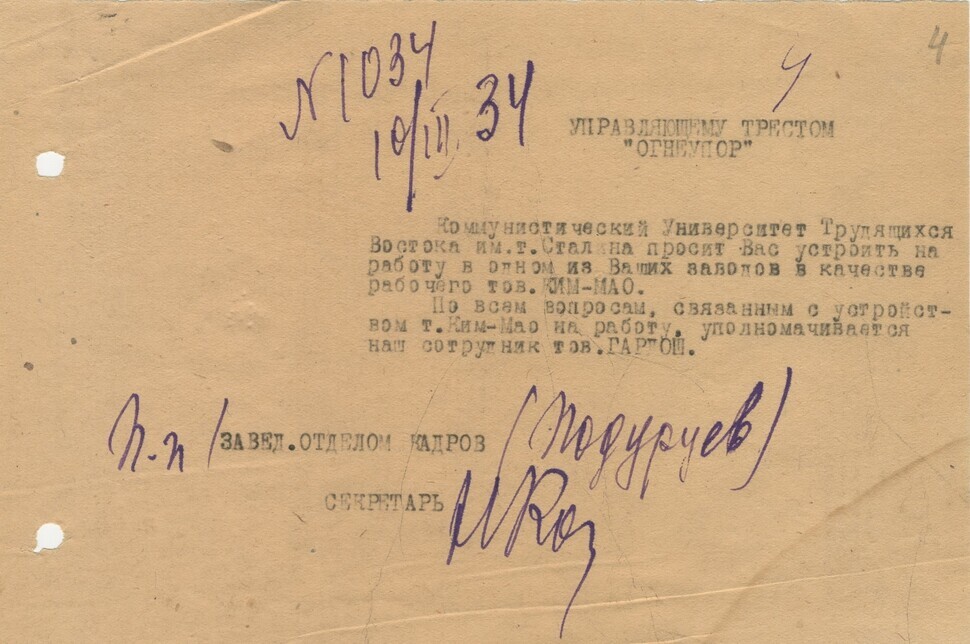 4
N 1034
10/III 34
УПРАВЛЯЮЩЕМУ ТРЕСТОМ
"ОГНЕУПОР"
Коммунистический Университет Трудящихся
Востока им.т.Сталина просит Вас устроить на
работу в одном из Ваших заводов в качестве
рабочего тов.КИМ-МАО.
По всем вопросам, связанным с устройст-
вом т.Ким-Мао на работу, уполномачивается
наш сотрудник тов.ГАРДОШ.
п.п / ЗАВЕД.ОТДЕЛОМ КАДРОВ (Подуруев)
СЕКРЕТАРЬ